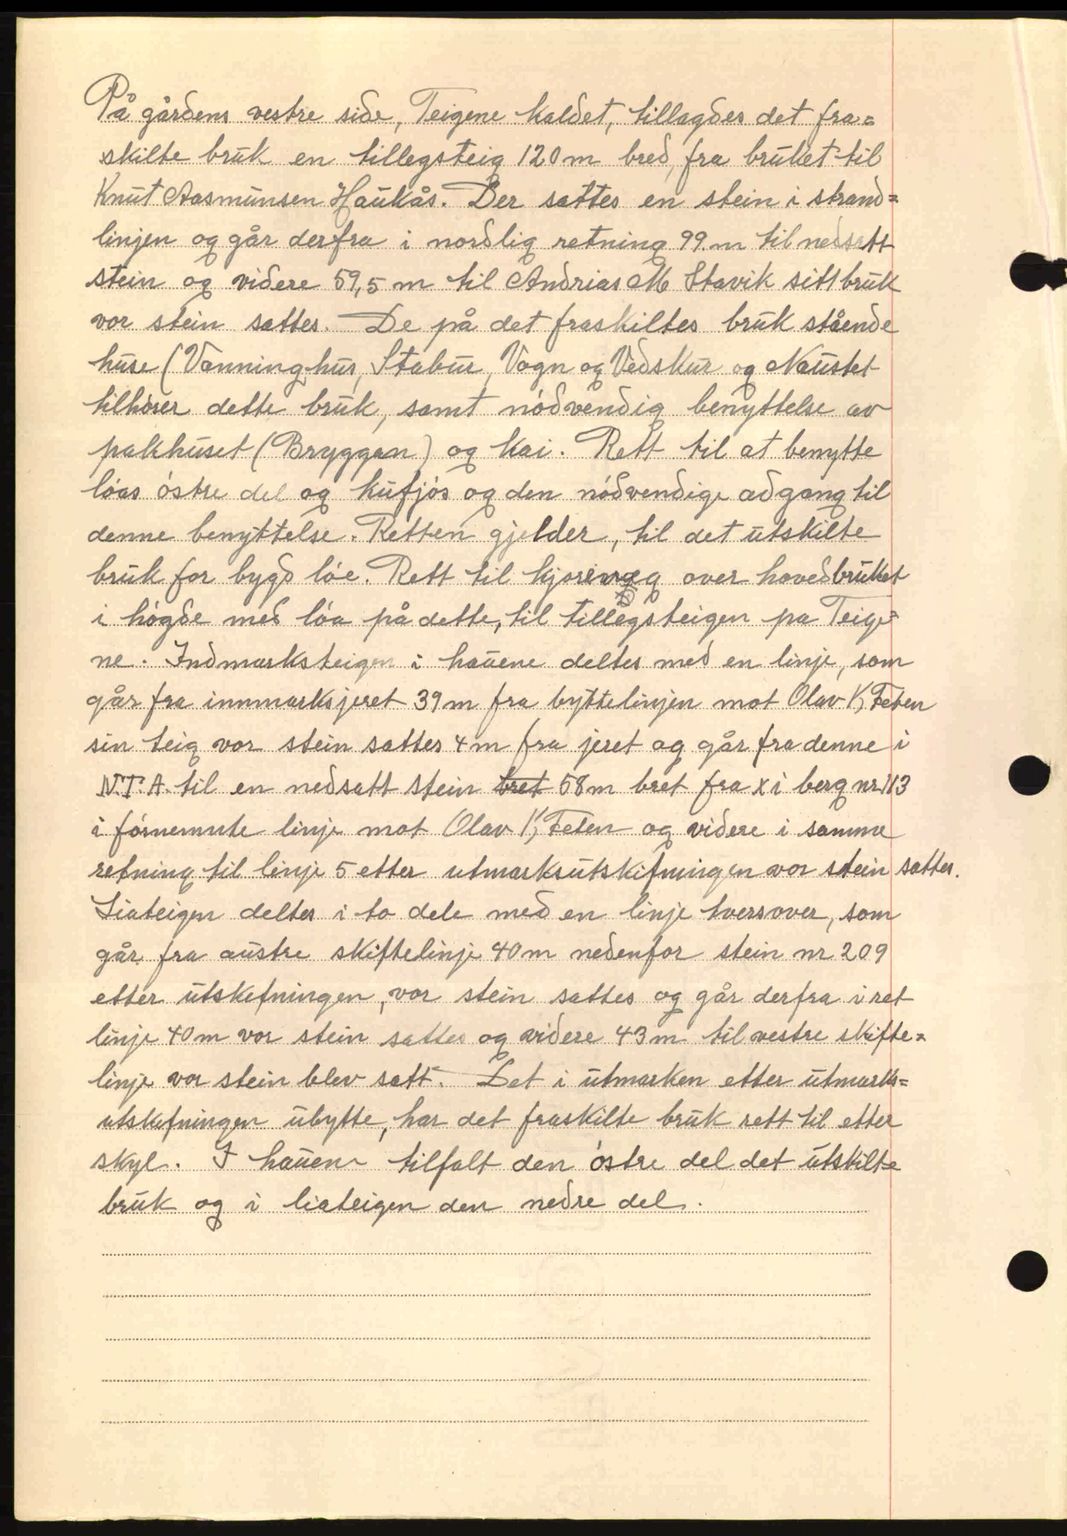 På gårdens vestre side, Teigene kaldet, tillagdes det fra=
skilte bruk en tillegsteig 120 m bred, fra bruket til
Knut Aasmunsen Haukås. Der sattes en stein i strand=
linjen og går derfra i nordlig retning 99 m til nedsatt
stein og videre 59,5 m til Andrias M Stavik sitt bruk
vor stein sattes. De på det fraskiltes bruk stående
huse (Vånninghus, Stabur, Vogn og Vedskur og Naustet
tilhører dette bruk, samt nódvendig benyttelse av
pakhuset (Bryggen) og kai. Rett til at benytte
lóas óstre del og kufjós og den nódvendige adgang til
denne benyttelse. Retten gjelder, til det utskilte
bruk for bygd lóe. Rett til kjøreveg over hovedbruket
i hógde med lóa på dette, til tillegsteigen pa Teige=
ne. Indmarksteigen i hauene deltes med en linje, som
går fra innmarksjeret 39 m fra byttelinjen mot Olav K, Feten
sin teig vor stein sattes 4 m fra jeret og går fra denne i
N.T.A. til en nedsatt stein bret 58 m bret fra x i berg nr 113
i fórnemnte linje mot Olav K, Feten og videre i samme
retning til linje 5 etter utmarksutskifningen vor stein sattes.
Liateigen deltes i to dele med en linje tversover, som
går fra austre skiftelinje 40 m nedenfor stein nr 209
etter utskefningen, vor stein sattes og går derfra i ret
linje 40 m vor stein sattes og videre 43 m til vestre skifte=
linje vor stein blev satt. Det i utmarken etter utmarks=
utskefningen ubytte, har det fraskilte bruk rett til etter
skyl. I hauene tilfalt den óstre del det utskilte
bruk og i liateigen den nedre del.